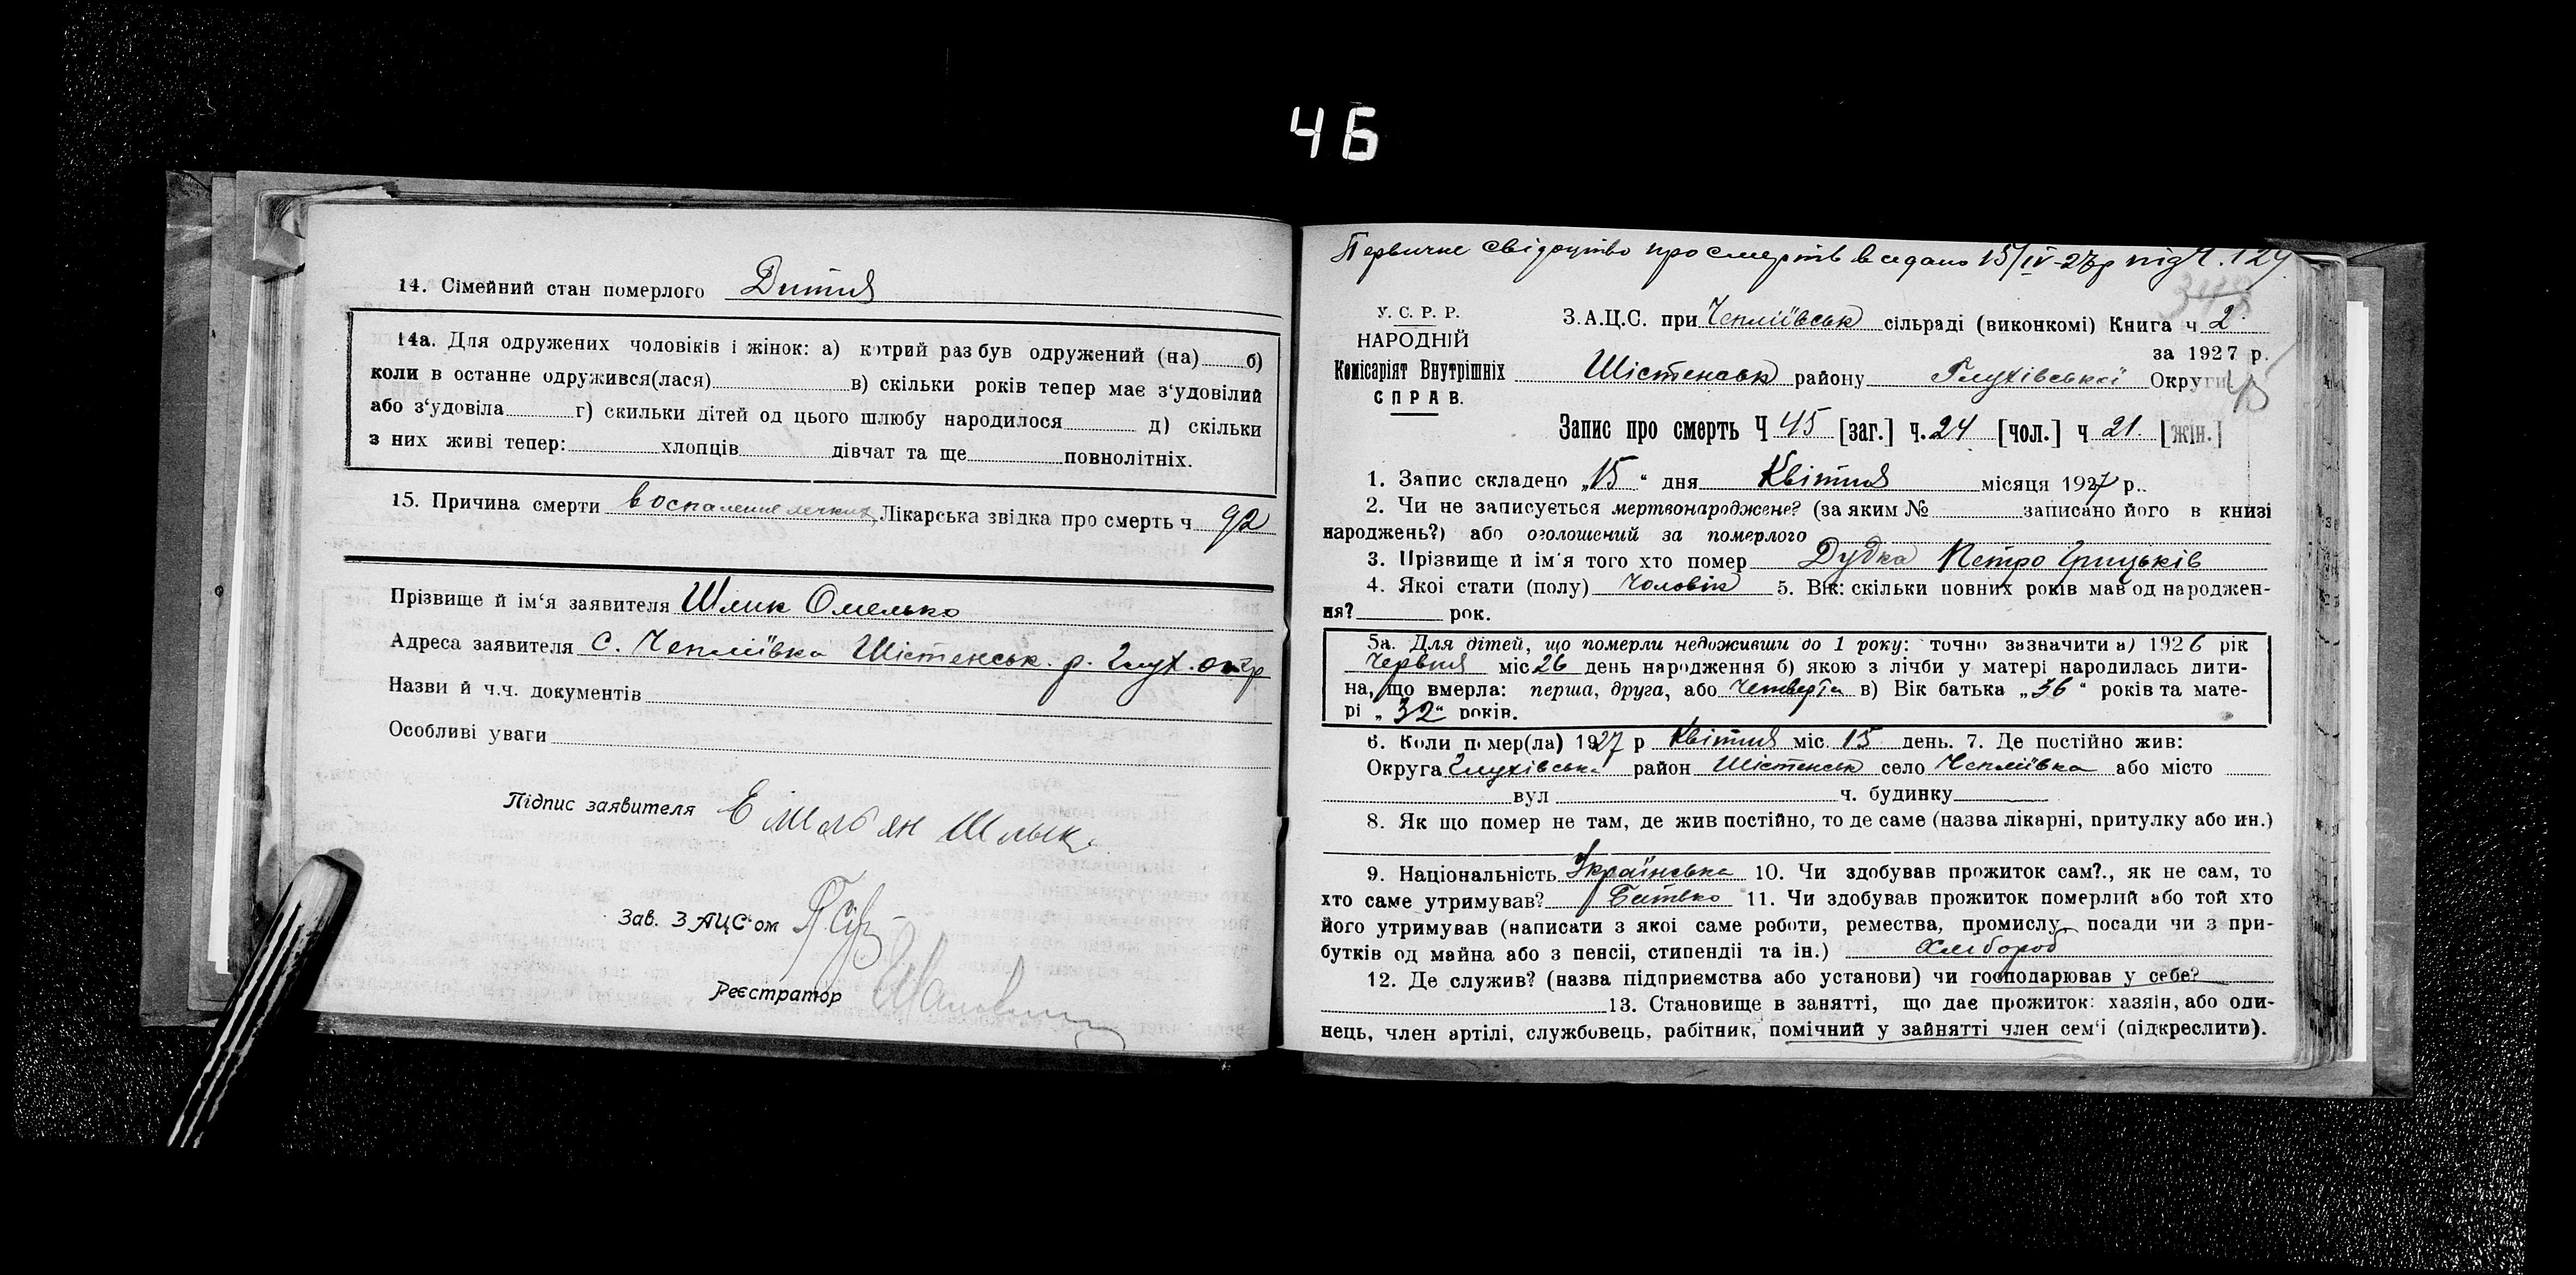 46
14. Сімейний стан померлого Дитня
14а. Для одружених чоловіків і жінок: а) котрий раз був одружений (на) б)
коли в останне одружився(лася) в) скільки років тепер має з‘удовілий
або з‘удовіла г) скильки дітей од цього шлюбу народилося д) скільки
з них живі тепер: хлопців дівчат та ще повнолітніх.
15. Причина смерти воспаление легких Лікарська звідка про смерть ч 92
Прізвище й ім‘я заявителя Шлик Омелько
Адреса заявителя с. Чепліївка Шістенськ. р. Глух. окр
Назви й ч.ч. документів
Особливі уваги
Підпис заявителя Емельян Шлык
Зав. ЗАЦС‘ом
Реєстратор
Первичне свідоцтво про смерть видано 15/IV-27р під Ч. 129
У. С. Р. Р.
НАРОДНІЙ
Комісаріят Внутрішніх
СПРАВ.
З.А.Ц.С. при Чепліївськ сільраді (виконкомі) Книга ч 2
за 1927 р.
Шістенськ району Глухівської Округи
45
Запис про смерть Ч 45 [заг.] ч. 24 [чол.] ч 21. [жін.]
1. Запис складено „15“ дня Квітня місяця 1927 р..
2. Чи не записується мертвонароджене? (за яким № записано його в книзі
народжень?) або оголошений за померлого
3. Прізвище й ім‘я того хто помер Дудка Петро Грицьків
4. Якої стати (полу) Чоловік 5. Вік: скільки повних років мав од народжен-
ня? рок.
5а. Для дітей, що померли недоживши до 1 року: точно зазначити а) 1926 рік
Червня міс 26 день народження б) якою з лічби у матері народилась дити-
на, що вмерла: перша, друга, або четверта в) Вік батька „36“ років та мате-
рі „32“ років.
6. Коли помер(ла) 1927 р Квітня міс. 15 день. 7. Де постійно жив:
Округа Глухівська район Шістенськ село Чепліївка або місто
вул ч. будинку
8. Як що помер не там, де жив постійно, то де саме (назва лікарні, притулку або ин.)
9. Національність Українська 10. Чи здобував прожиток сам?., як не сам, то
хто саме утримував? Батько 11. Чи здобував прожиток померлий або той хто
його утримував (написати з якої саме роботи, ремества, промислу, посади чи з при-
бутків од майна або з пенсії, стипендії та ін.) Хлібороб
12. Де служив? (назва підприємства або установи) чи господарював у себе?
13. Становище в занятті, що дає прожиток: хазяїн, або оди-
нець, член артілі, службовець, рабітник, помічний у зайнятті член сем‘ї (підкреслити).